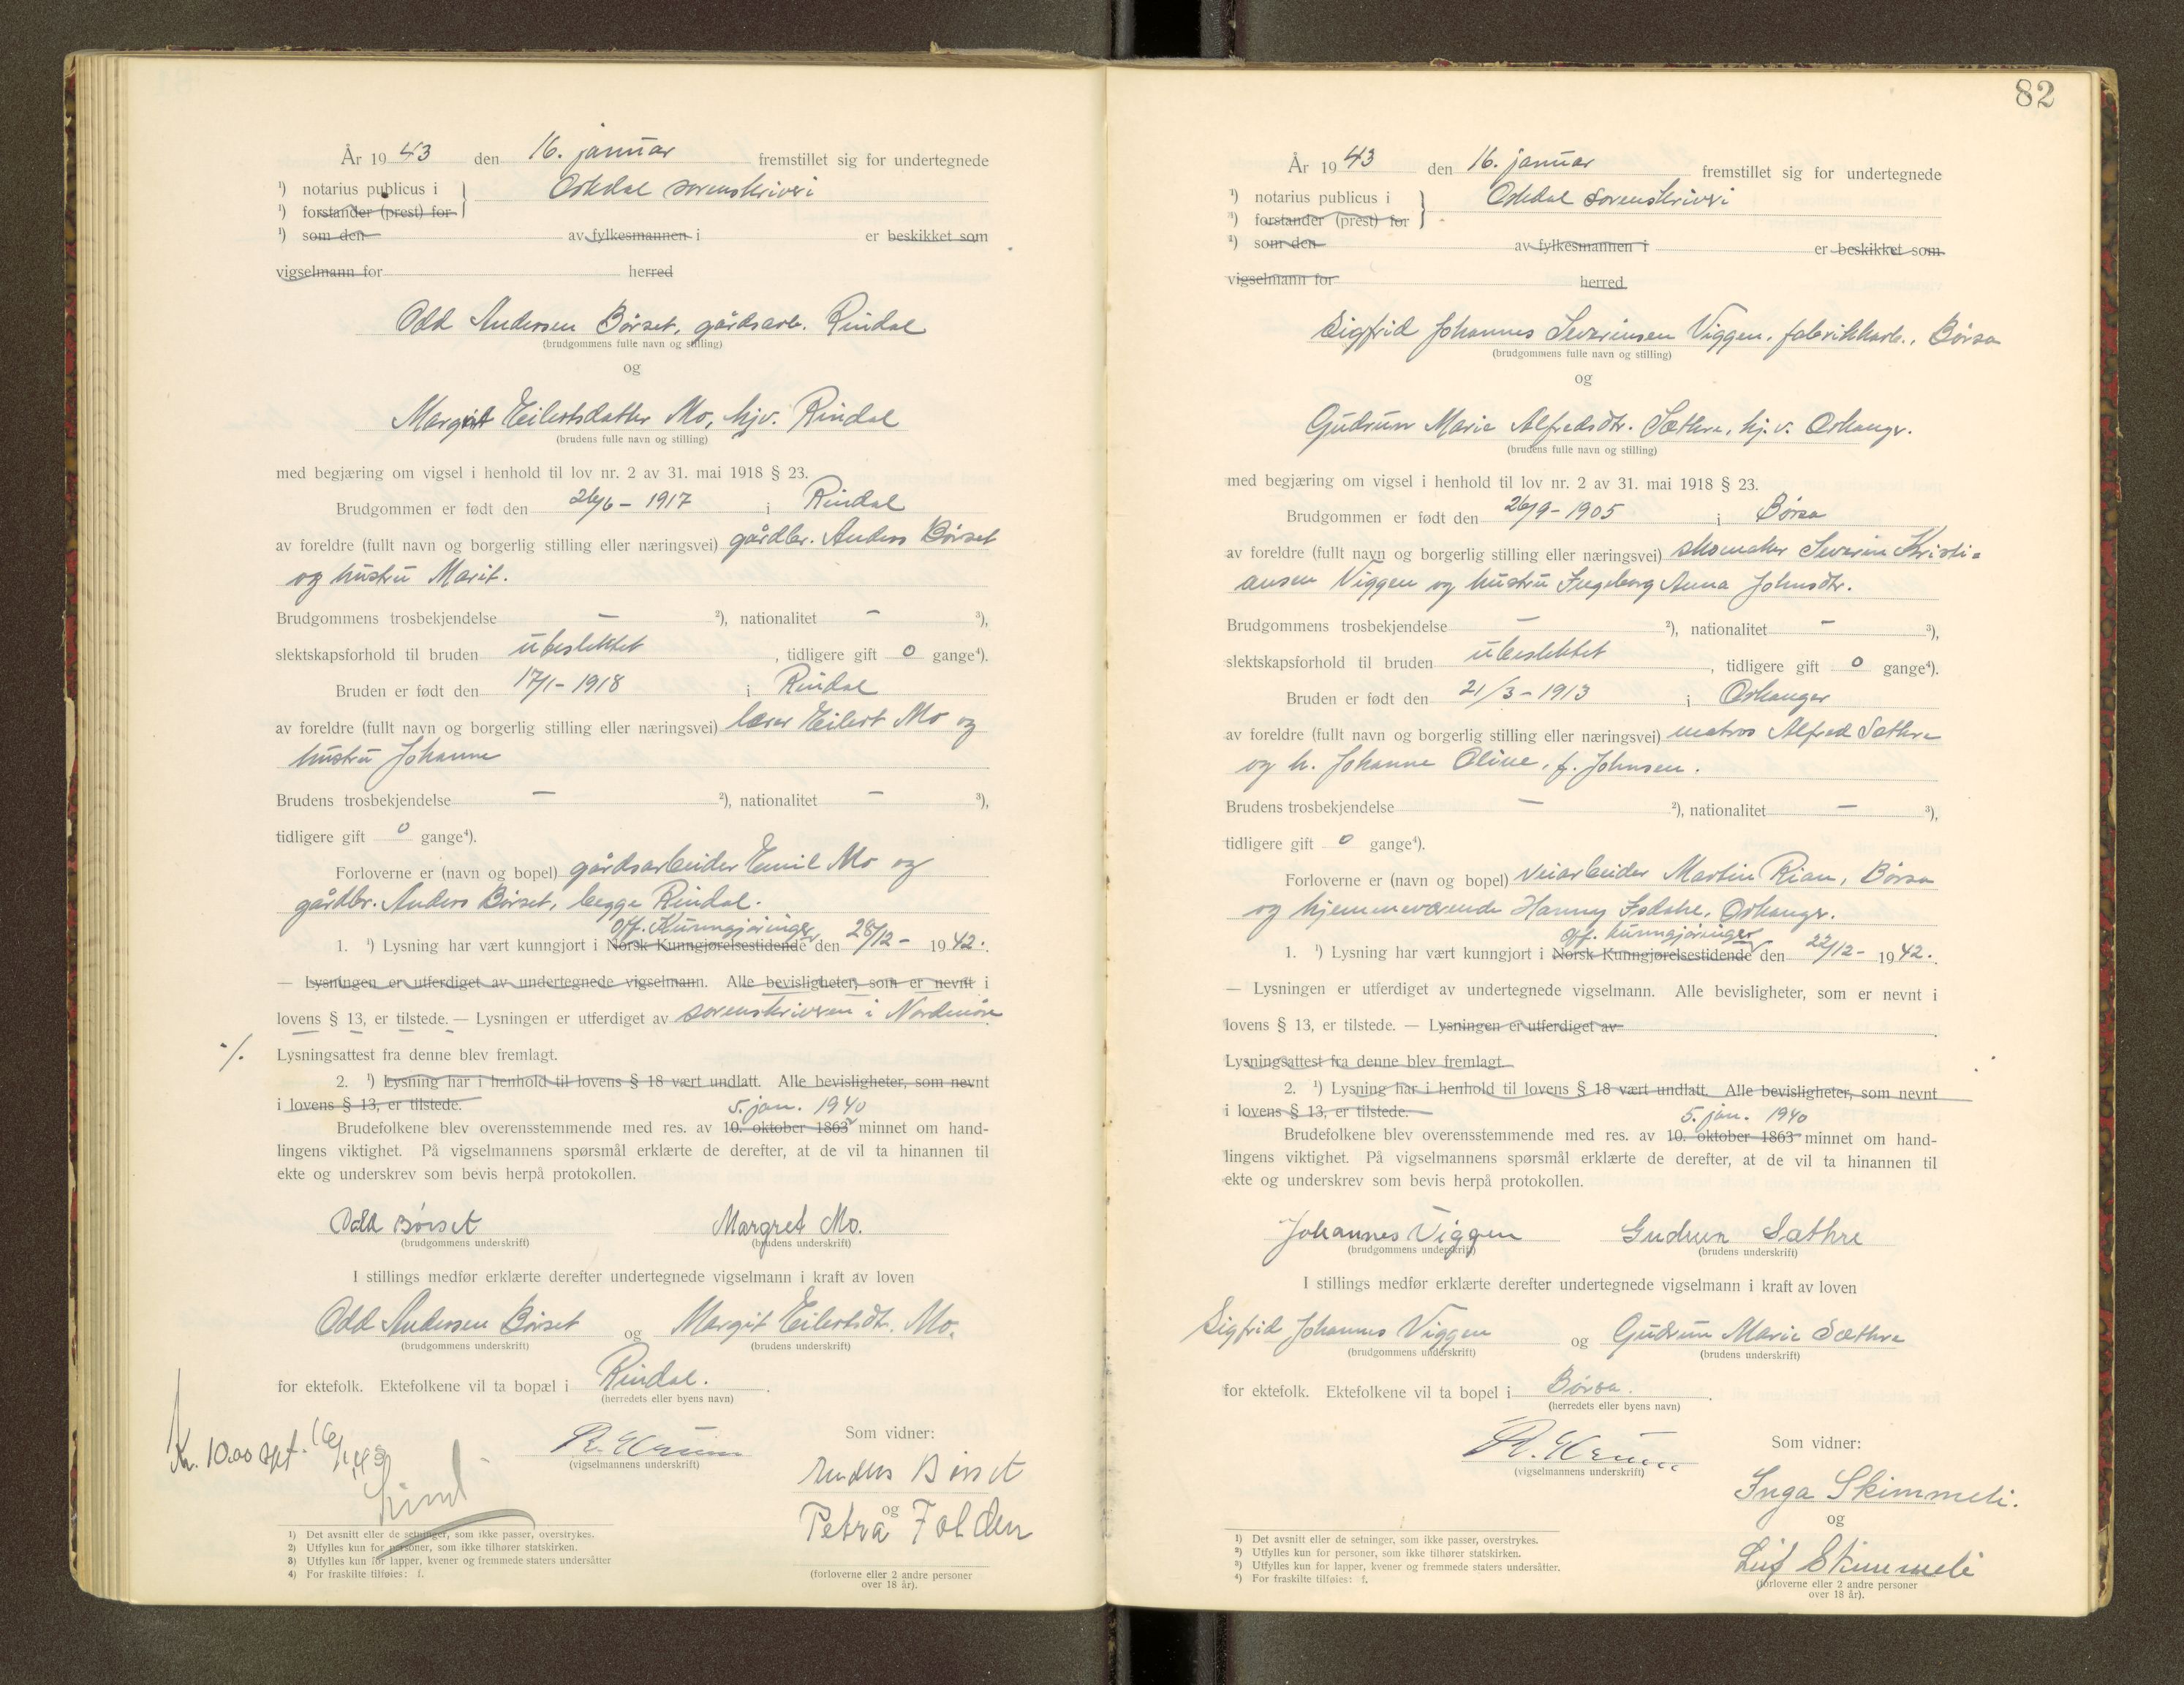 År 19 43 den 16. januar fremstillet sig for undertegnede
¹) notarius publicus i Orkdal sorenskriveri
¹) forstander (prest) for
¹) som den av fylkesmannen i er beskikket som
vigselmann for herred
Odd Andersen Børset, gårdsarb. Rindal
(brudgommens fulle navn og stilling)
og
Margit Eilertsdatter Mo, hjv. Rindal
(brudens fulle navn og stilling)
med begjæring om vigsel i henhold til lov nr. 2 av 31. mai 1918 § 23.
Brudgommen er født den 26/6 - 1917 i Rindal
av foreldre (fullt navn og borgerlig stilling eller næringsvei) gårdbr. Anders Børset
og hustru Marit.
Brudgommens trosbekjendelse — ²), nationalitet – ³),
slektskapsforhold til bruden ubeslektet, tidligere gift 0 gange⁴).
Bruden er født den 17/1 - 1918 i Rindal
av foreldre (fullt navn og borgerlig stilling eller næringsvei) lærer Eilert Mo og
hustru Johanne
Brudens trosbekjendelse — ²), nationalitet – ³),
tidligere gift 0 gange⁴).
Forloverne er (navn og bopel) gårdsarbeider Emil Mo og
gårdbr. Anders Børset, begge Rindal.
off. Kunngjøringer
1. ¹) Lysning har vært kunngjort i Norsk Kunngjørelsestidende den 28/12 - 19 42.
— Lysningen er utferdiget av undertegnede vigselmann. Alle bevisligheter, som er nevnt i
lovens § 13, er tilstede. — Lysningen er utferdiget av sorenskriveren i Nordmøre
·/. Lysningsattest fra denne blev fremlagt.
2. ¹) Lysning har i henhold til lovens § 18 vært undlatt. Alle bevisligheter, som nevnt
i lovens § 13, er tilstede.
5. jan. 1940
Brudefolkene blev overensstemmende med res. av 10. oktober 1863 minnet om hand-
lingens viktighet. På vigselmannens spørsmål erklærte de derefter, at de vil ta hinannen til
ekte og underskrev som bevis herpå protokollen.
Odd Børset Margret Mo.
(brudgommens underskrift) (brudens underskrift)
I stillings medfør erklærte derefter undertegnede vigselmann i kraft av loven
Odd Andersen Børset og Margit Eilertsdtr. Mo.
(brudgommens underskrift) (brudens underskrift)
for ektefolk. Ektefolkene vil ta bopæl i Rindal.
(herredets eller byens navn)
Kr. 10.00 16/1 43
(vigselmannens underskrift)
Som vidner:
Anders Børset
og
Petra Folden
(forloverne eller 2 andre personer
over 18 år).
1) Det avsnitt eller de setninger, som ikke passer, overstrykes.
2) Utfylles kun for personer, som ikke tilhører statskirken.
3) Utfylles kun for lapper, kvener og fremmede staters undersåtter
4) For fraskilte tilføies: f.
82
År 19 43 den 16. januar fremstillet sig for undertegnede
¹) notarius publicus i Orkdal sorenskriveri
¹) forstander (prest) for
¹) som den av fylkesmannen i er beskikket som
vigselmann for herred
Sigfrid Johannes Severinsen Viggen, fabrikkarb., Børsa
(brudgommens fulle navn og stilling)
og
Gudrun Marie Alfredsdtr. Sæthre, hj.v. Orkanger.
(brudens fulle navn og stilling)
med begjæring om vigsel i henhold til lov nr. 2 av 31. mai 1918 § 23.
Brudgommen er født den 26/9 - 1905 i Børsa
av foreldre (fullt navn og borgerlig stilling eller næringsvei) skomaker Severin Kristi-
ansen Viggen og hustru Ingeborg Anna Johnsdtr.
Brudgommens trosbekjendelse — ²), nationalitet – ³),
slektskapsforhold til bruden ubeslektet, tidligere gift 0 gange⁴).
Bruden er født den 21/3 - 1913 i Orkanger
av foreldre (fullt navn og borgerlig stilling eller næringsvei) matros Alfred Sæthre
og h. Johanne Oline, f. Johnsen.
Brudens trosbekjendelse — ²), nationalitet — ³),
tidligere gift 0 gange⁴).
Forloverne er (navn og bopel) veiarbeider Martin Rian, Børsa
og hjemmeværende Hanny Isdahl, Orkanger.
off. kunngjøringer
1. ¹) Lysning har vært kunngjort i Norsk Kunngjørelsestidende den 22/12 - 19 42.
— Lysningen er utferdiget av undertegnede vigselmann. Alle bevisligheter, som er nevnt i
lovens § 13, er tilstede. — Lysningen er utferdiget av
Lysningsattest fra denne blev fremlagt.
2. ¹) Lysning har i henhold til lovens § 18 vært undlatt. Alle bevisligheter, som nevnt
i lovens § 13, er tilstede.
5. jan. 1940
Brudefolkene blev overensstemmende med res. av 10. oktober 1863 minnet om hand-
lingens viktighet. På vigselmannens spørsmål erklærte de derefter, at de vil ta hinannen til
ekte og underskrev som bevis herpå protokollen.
Johannes Viggen Gudrun Sæthre
(brudgommens underskrift) (brudens underskrift)
I stillings medfør erklærte derefter undertegnede vigselmann i kraft av loven
Sigfrid Johannes Viggen og Gudrun Marie Sæthre
(brudgommens underskrift) (brudens underskrift)
for ektefolk. Ektefolkene vil ta bopel i Børsa.
(herredets eller byens navn)
(vigselmannens underskrift)
Som vidner:
Inga Skimmeli.
og
Leif Skimmeli
(forloverne eller 2 andre personer
over 18 år).
1) Det avsnitt eller de setninger, som ikke passer, overstrykes.
2) Utfylles kun for personer, som ikke tilhører statskirken.
3) Utfylles kun for lapper, kvener og fremmede staters undersåtter.
4) For fraskilte tilføies: f.